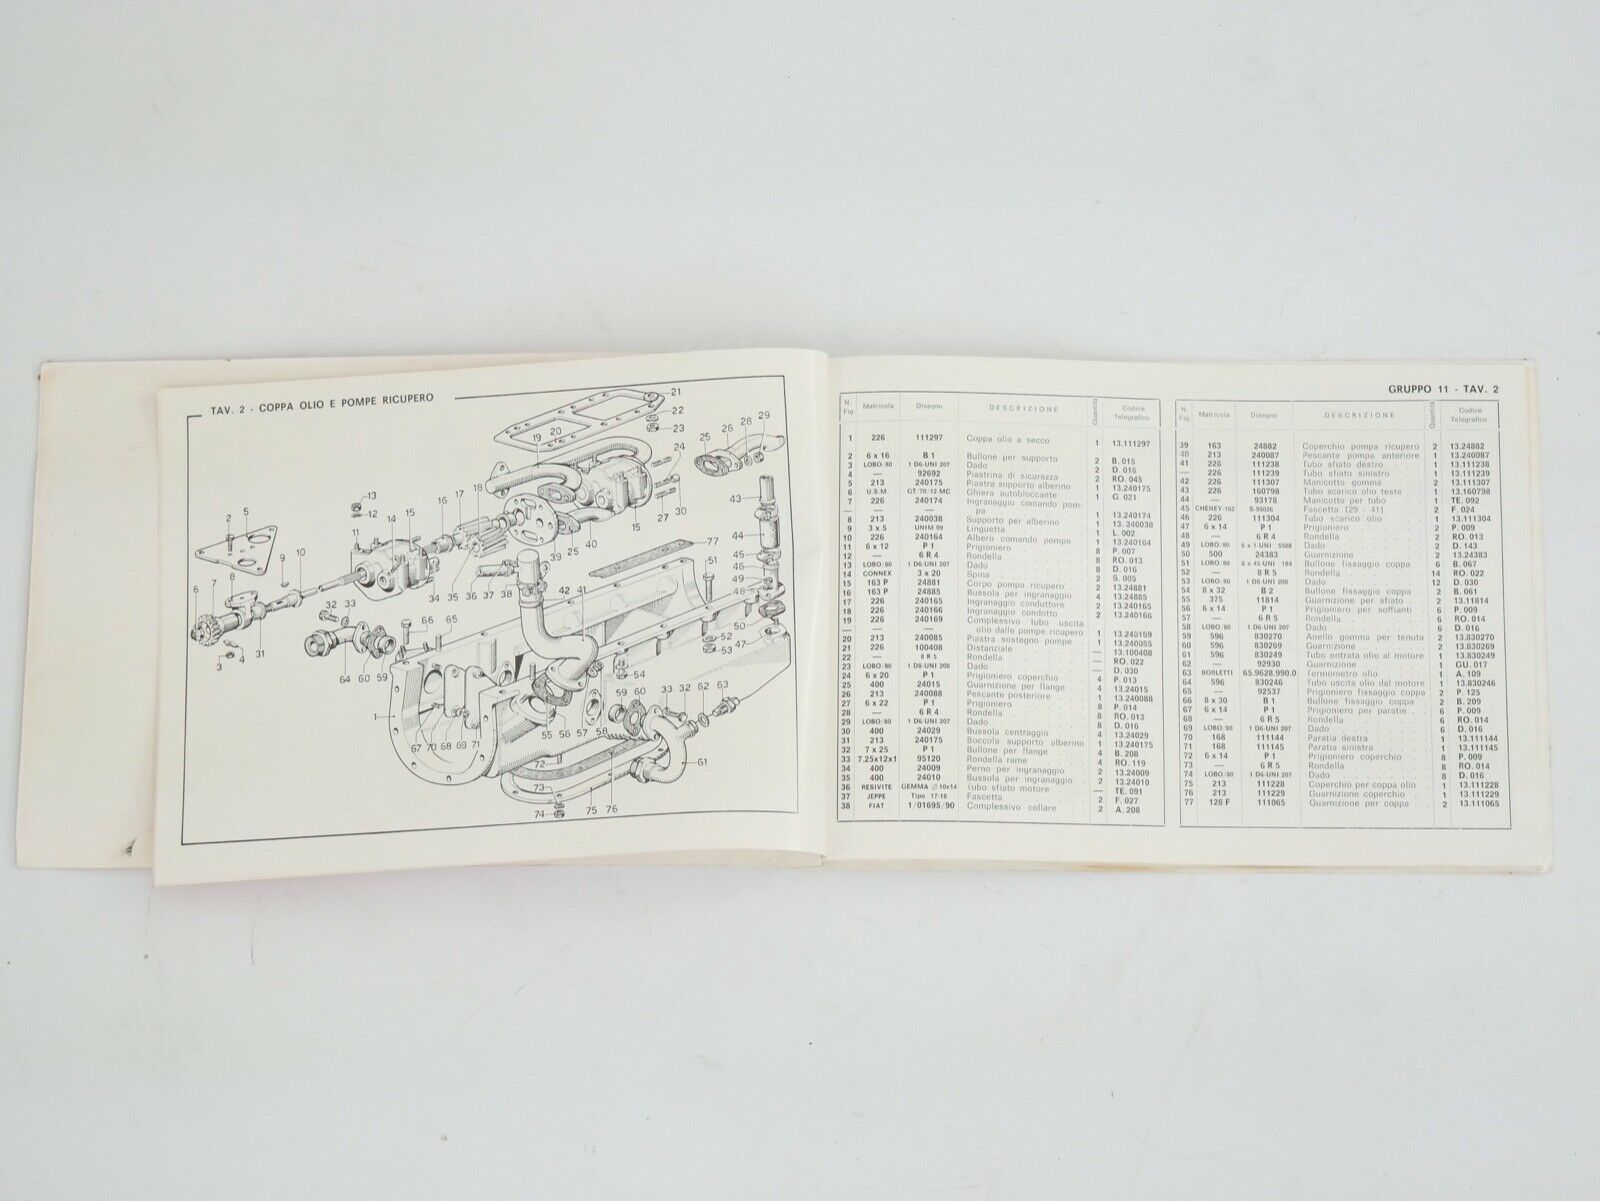 TAV. 2 - COPPA OLIO E POMPE RICUPERO
GRUPPO 11 - TAV. 2
N. Fig. Matricola Disegno DESCRIZIONE Quantità Codice Telegrafico
1 226 111297 Coppa olio a secco 1 13.111297
2 6 x 16 B 1 Bullone per supporto 2 B. 015
3 LOBO/80 1 D6-UNI 207 Dado 2 D. 016
4 — 92692 Piastrina di sicurezza 2 RO. 045
5 213 240175 Piastra supporto alberino 1 13.240175
6 U.S.M. GT/70/12 MC Ghiera autobloccante 1 G. 021
7 226 240174 Ingranaggio comando pom-
— — — pa 1 13.240174
8 213 240038 Supporto per alberino 1 13. 240038
9 3 x 5 UNIM 99 Linguetta 1 L. 002
10 226 240164 Albero comando pompe 1 13.240164
11 6 x 12 P 1 Prigioniero 8 P. 007
12 — 6 R 4 Rondella 8 RO. 013
13 LOBO/80 1 D6-UNI 207 Dado 8 D. 016
14 CONNEX 3 x 20 Spina 2 S. 005
15 163 P 24881 Corpo pompa ricupero 2 13.24881
16 163 P 24885 Bussola per ingranaggio 4 13.24885
17 226 240165 Ingranaggio conduttore 2 13.240165
18 226 240166 Ingranaggio condotto 2 13.240166
19 226 240169 Complessivo tubo uscita
— — — olio dalle pompe ricupero 1 13.240169
20 213 240085 Piastra sostegno pompe 1 13.240085
21 226 100408 Distanziale — 13.100408
22 — 8 R 5 Rondella — RO. 022
23 LOBO/80 1 D8-UNI 208 Dado — D. 030
24 6 x 20 P 1 Prigioniero coperchio 4 P. 013
25 400 24015 Guarnizione per flange 4 13.24015
26 213 240088 Pescante posteriore 1 13.240088
27 6 x 22 P 1 Prigioniero 8 P. 014
28 — 6 R 4 Rondella 8 RO. 013
29 LOBO/80 1 D6-UNI 207 Dado 8 D. 016
30 400 24029 Bussola centraggio 4 13.24029
31 213 240175 Boccola supporto alberino 1 13.240175
32 7 x 25 P 1 Bullone per flange 4 B. 208
33 7.25x12x1 95120 Rondella rame 4 RO. 119
34 400 24009 Perno per ingranaggio 2 13.24009
35 400 24010 Bussola per ingranaggio 2 13.24010
36 RESIVITE GEMMA ∅ 10x14 Tubo sfiato motore — TE. 091
37 JEPPE Tipo. 17-18 Fascetta 2 F. 027
38 FIAT 1/01695/90 Complessivo collare 2 A. 208
N. Fig. Matricola Disegno DESCRIZIONE Quantità Codice Telegrafico
39 163 24882 Coperchio pompa ricupero 2 13.24882
40 213 240087 Pescante pompa anteriore 1 13.240087
41 226 111238 Tubo sfiato destro 1 13.111238
— 226 111239 Tubo sfiato sinistro 1 13.111239
42 226 111307 Manicotto gomma 2 13.111307
43 226 160798 Tubo scarico olio teste 1 13.160798
44 — 93178 Manicotto per tubo 1 TE. 092
45 CHENEY-162 S-95026 Fascetta (29 - 41) 2 F. 024
46 226 111304 Tubo scarico olio 1 13.111304
47 6 x 14 P 1 Prigioniero 2 P. 009
48 — 6 R 4 Rondella 2 RO. 013
49 LOBO/80 6 x 1-UNI 5588 Dado 2 D. 143
50 500 24383 Guarnizione 2 13.24383
51 LOBO/80 8 x 45-UNI 184 Bullone fissaggio coppa 6 B. 067
52 — 8 R 5 Rondella 14 RO. 022
53 LOBO/80 1 D8-UNI 208 Dado 12 D. 030
54 8 x 32 B 2 Bullone fissaggio coppa 2 B. 061
55 375 11814 Guarnizione per sfiato 2 13.11814
56 6 x 14 P 1 Prigioniero per soffianti 6 P. 009
57 — 6 R 5 Rondella 6 RO. 014
58 LOBO/80 1 D6-UNI 207 Dado 6 D. 016
59 596 830270 Anello gomma per tenuta 2 13.830270
60 596 830269 Guarnizione 2 13.830269
61 596 830249 Tubo entrata olio al motore 1 13.830249
62 — 92930 Guarnizione 1 GU. 017
63 BORLETTI 65.9628.990.0 Termometro olio 1 A. 109
64 596 830246 Tubo uscita olio dal motore 1 13.830246
65 — 92537 Prigioniero fissaggio coppa 2 P. 125
66 8 x 30 B 1 Bullone fissaggio coppa 2 B. 209
67 6 x 14 P 1 Prigioniero per paratie 6 P. 009
68 — 6 R 5 Rondella 6 RO. 014
69 LOBO/80 1 D6-UNI 207 Dado 6 D. 016
70 168 111144 Paratia destra 1 13.111144
71 168 111145 Paratia sinistra 1 13.111145
72 6 x 14 P 1 Prigioniero coperchio 8 P. 009
73 — 6 R 5 Rondella 8 RO. 014
74 LOBO/80 1 D6-UNI 207 Dado 8 D. 016
75 213 111228 Coperchio per coppa olio 1 13.111228
76 213 111229 Guarnizione coperchio 1 13.111229
77 128 F 111065 Guarnizione per coppa 2 13.111065